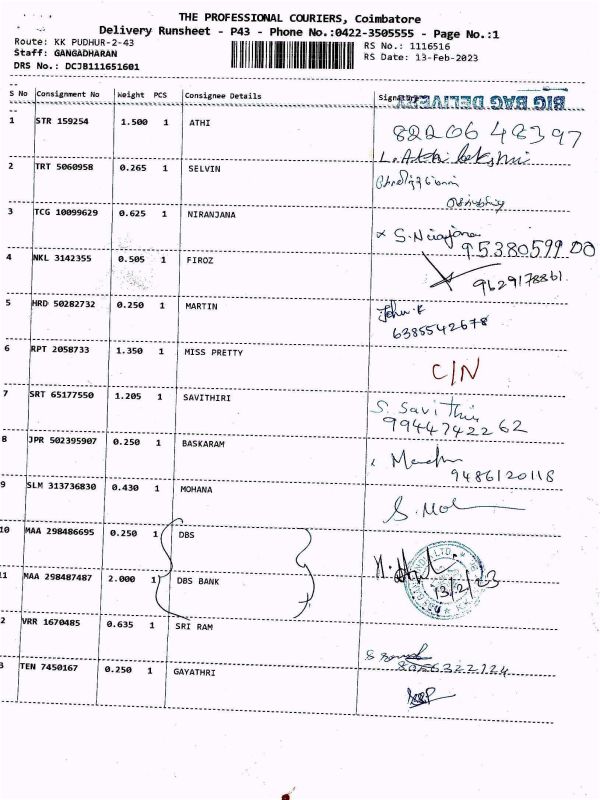 THE PROFESSIONAL COURIERS, Coimbatore
Delivery Runsheet - P43 - Phone No.:0422-3505555 - Page No.:1
Route: KK PUDHUR-2-43 RS No.: 1116516
Staff: GANGADHARAN RS Date: 13-Feb-2023
DRS No.: DCJB111651601
S No Consignment No Weight PCS Consignee Details BIG BAG DELIVERY
1 STR 159254 1.500 1 ATHI 82206 48397
2 TRT 5060958 0.265 1 SELVIN
3 TCG 10099629 0.625 1 NIRANJANA x S.Niranjana 9538059900
4 NKL 3142355 0.505 1 FIROZ 9629178861.
5 HRD 50282732 0.250 1 MARTIN John.K 6385542678
6 RPT 2058733 1.350 1 MISS PRETTY C/N
7 SRT 65177550 1.205 1 SAVITHIRI S. Savithiri 9944742262
8 JPR 502395907 0.250 1 BASKARAM 9486120118
9 SLM 313736830 0.430 1 MOHANA S. Moh
10 MAA 298486695 0.250 1 DBS
11 MAA 298487487 2.000 1 DBS BANK 13/2/23
2 VRR 1670485 0.635 1 SRI RAM
3 TEN 7450167 0.250 1 GAYATHRI